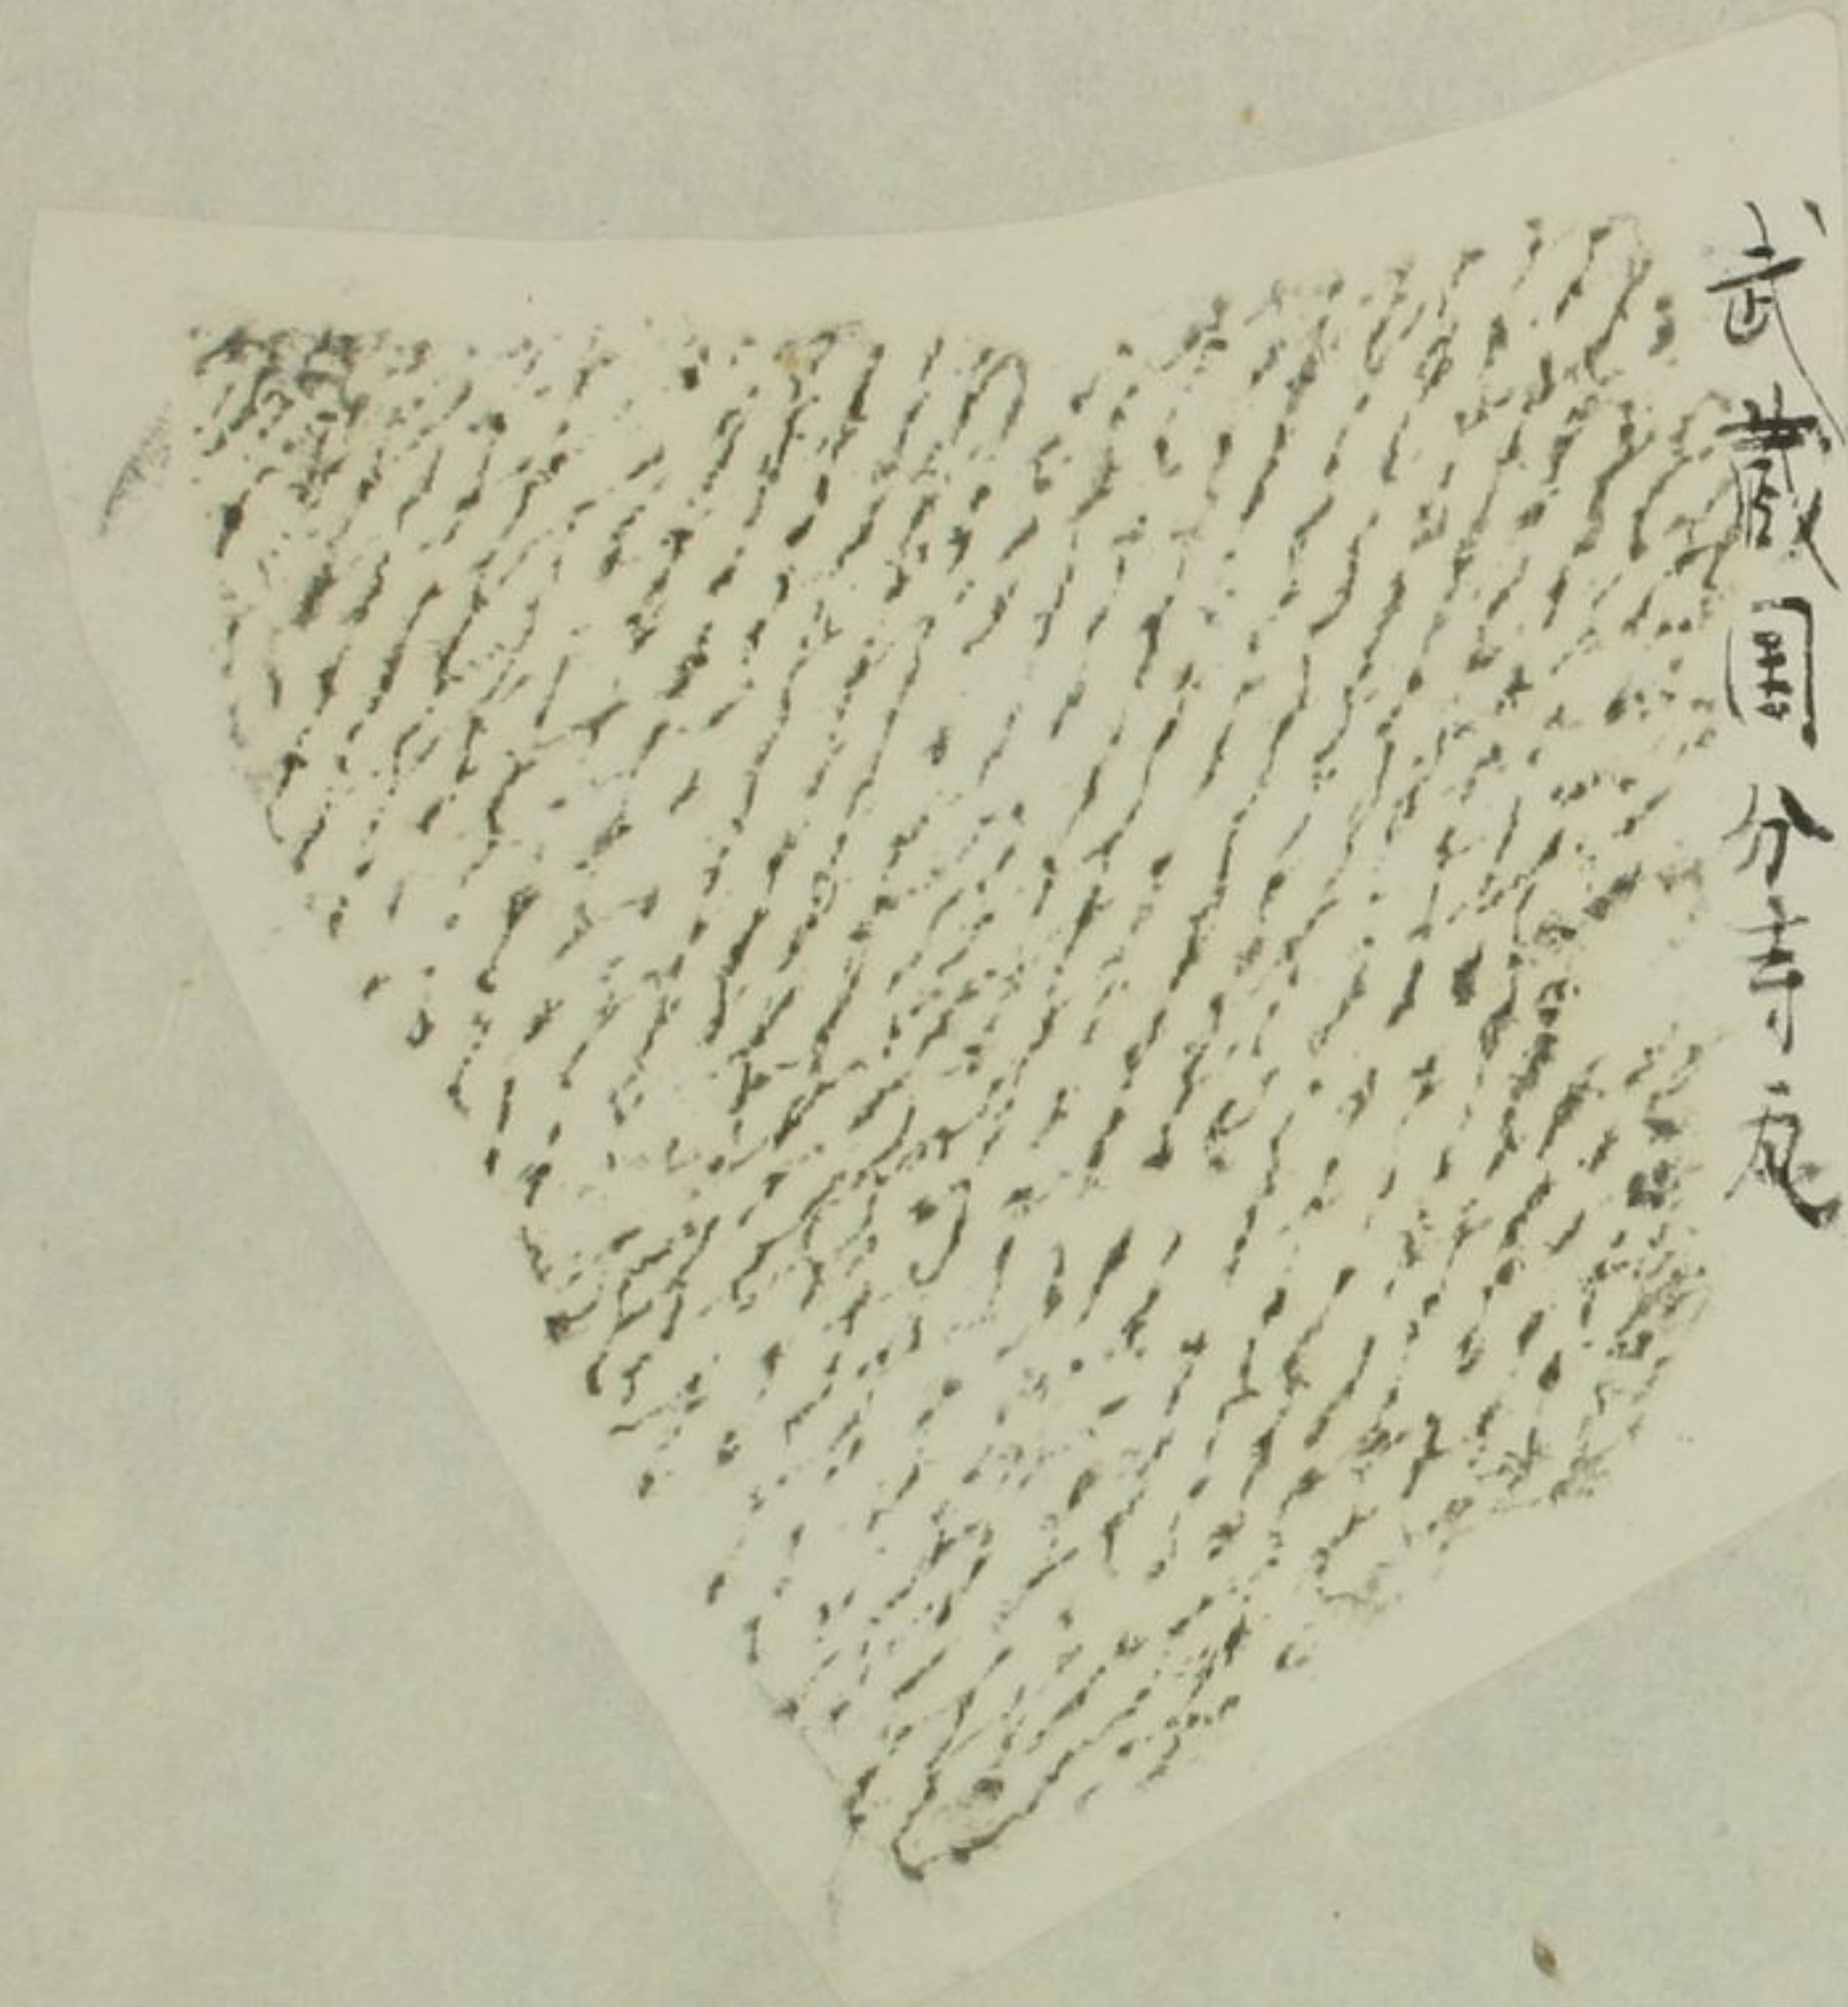 武蔵国分寺瓦